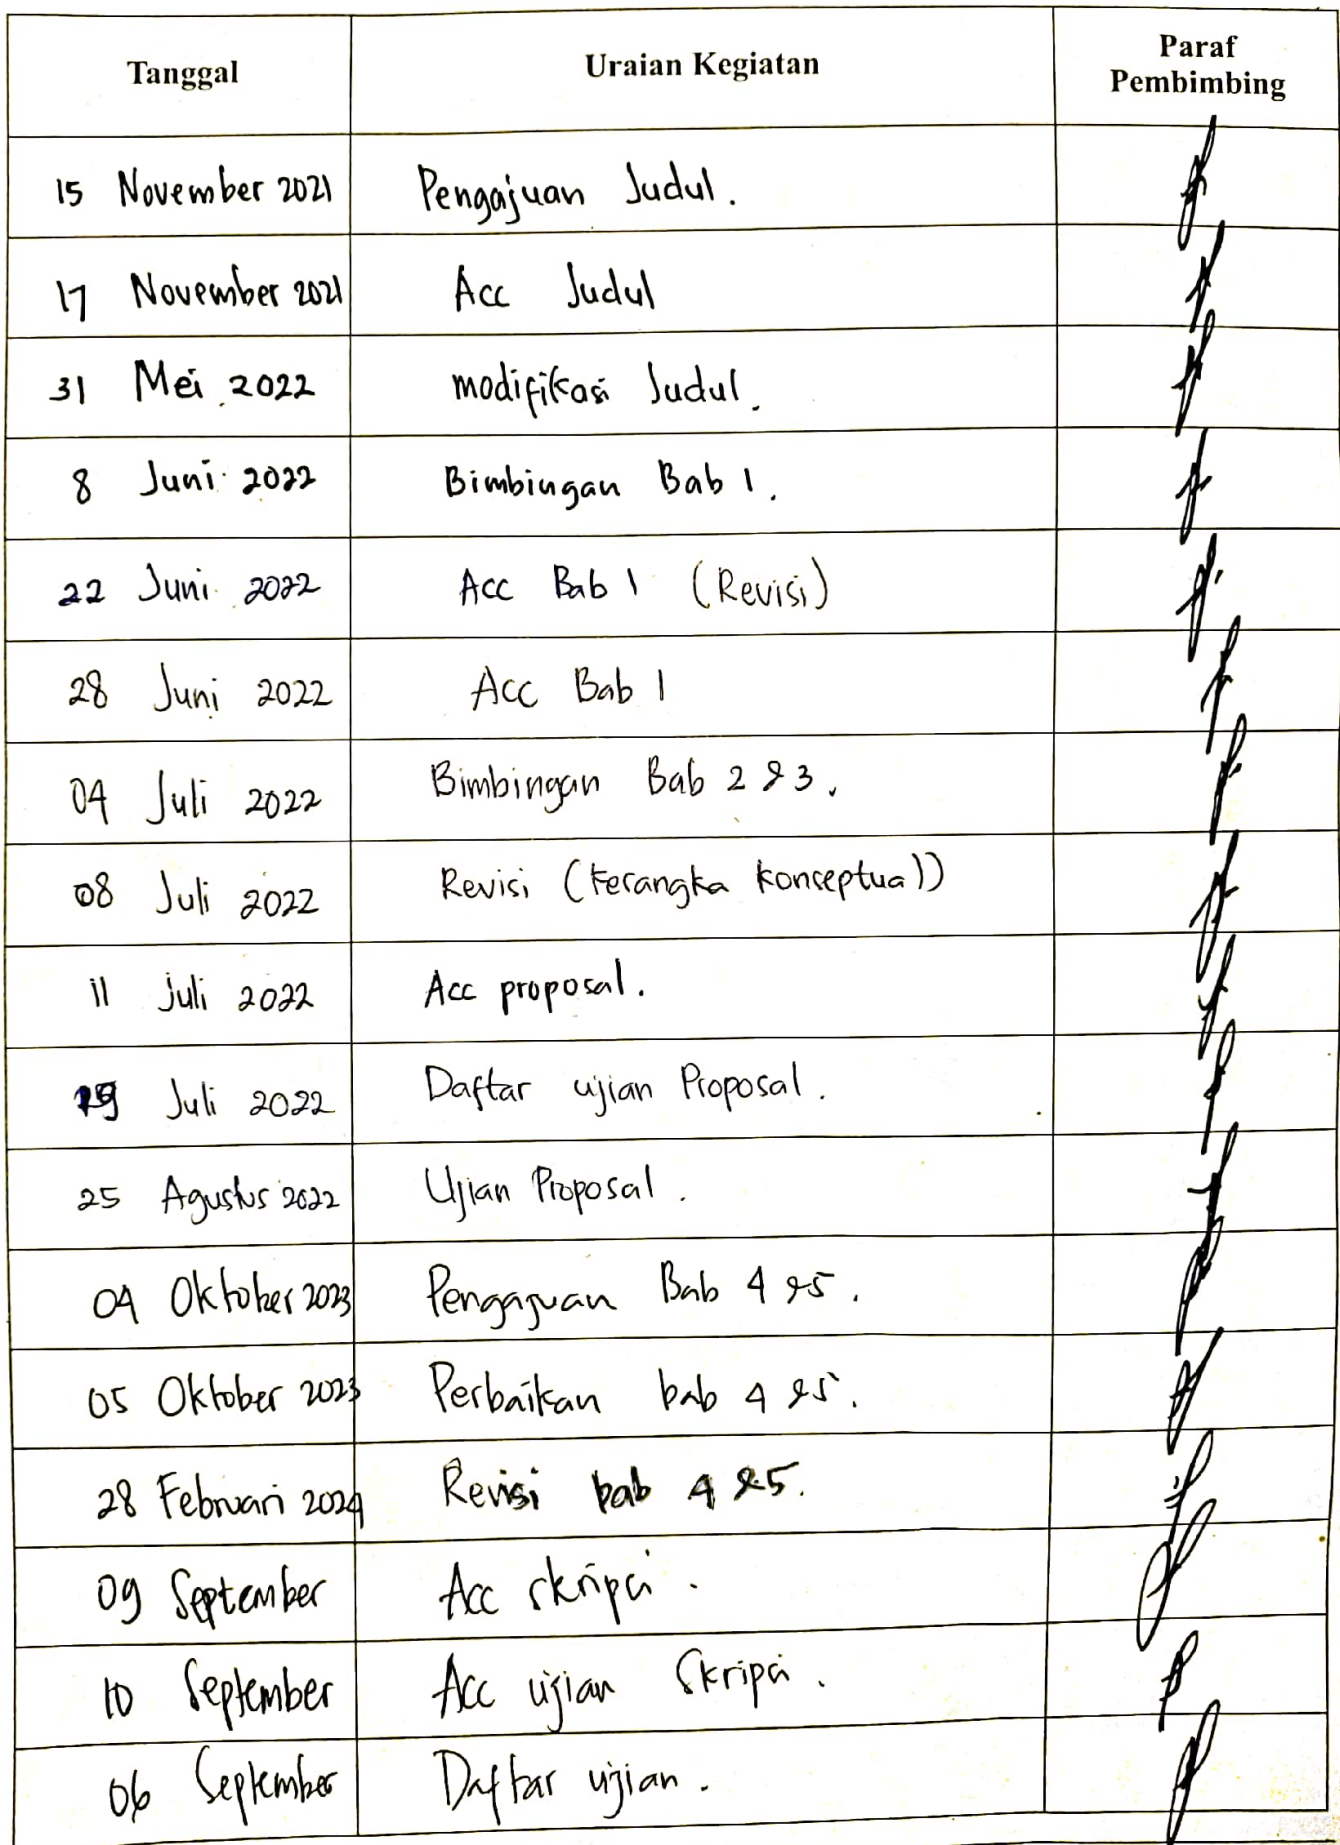 Tanggal Uraian Kegiatan Paraf
Pembimbing
15 November 2021 Pengajuan Judul.
17 November 2021 Acc Judul
31 Mei 2022 modifikasi Judul.
8 Juni 2022 Bimbingan Bab 1.
22 Juni 2022 Acc Bab 1 (Revisi)
28 Juni 2022 Acc Bab 1
04 Juli 2022 Bimbingan Bab 2 & 3.
08 Juli 2022 Revisi (Kerangka konseptual)
11 Juli 2022 Acc proposal.
19 Juli 2022 Daftar ujian Proposal.
25 Agustus 2022 Ujian Proposal.
04 Oktober 2023 Pengajuan Bab 4 & 5.
05 Oktober 2023 Perbaikan bab 4 & 5.
28 Februari 2024 Revisi bab 4 & 5.
09 September Acc skripsi.
10 September Acc ujian Skripsi.
06 September Daftar ujian.